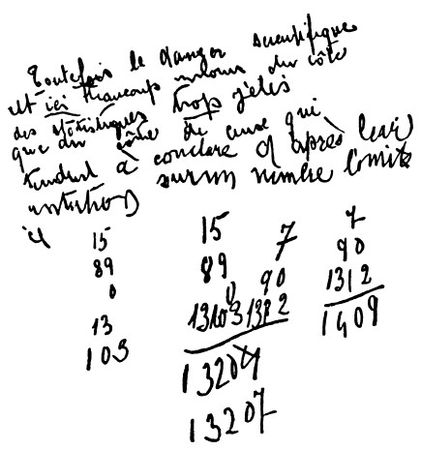 Toutefois le danger scientifique
et ici beaucoup moins du côté
des statistiques trop zélés
que du côté de ceux qui
tendent à conclure d'après leur
sur un nombre limité
15 15 7 7
89 89 90 90
0 0 1312
13 1409
103
13204
13207